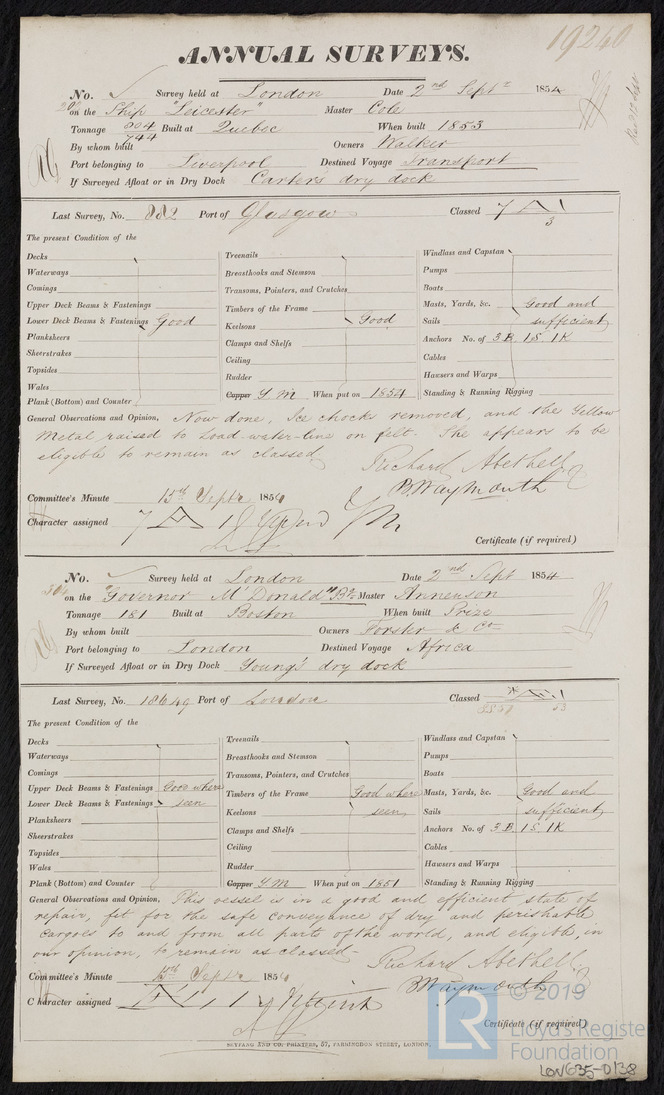 19240
ANNUAL SURVEYS.
No. Survey held at London Date 2nd Septr 1854
on the Ship "Leicester" Master Cole
Tonnage 904 744 Built at Quebec When built 1853
By whom built Owners Walker
Port belonging to Liverpool Destined Voyage Transport
If Surveyed Afloat or in Dry Dock Carter's dry dock
Last Survey, No. 882 Port of Glasgow Classed 7 A 1
3
The present Condition of the
Decks Treenails Windlass and Capstan
Waterways Breasthooks and Stemson Pumps
Comings Transoms, Pointers, and Crutches Boats
Upper Deck Beams & Fastenings Timbers of the Frame Masts, Yards, &c. Good and
Lower Deck Beams & Fastenings Good Keelsons Good Sails sufficient
Planksheers Clamps and Shelfs Anchors No. of 3 B 1 S 1 K
Sheerstrakes Ceiling Cables
Topsides Rudder Hawsers and Warps
Wales Copper Y M When put on 1854 Standing & Running Rigging
Plank (Bottom) and Counter
General Observations and Opinion, Now done, Ice chocks removed, and the Yellow
Metal raised to load-water-line on felt. She appears to be
eligible to remain as classed
Richard Abethell
B Waymouth
Committee's Minute 15th Septr 1854
Character assigned 7 A 1
Certificate (if required)
No. Survey held at London Date 2nd Sept 1854
on the "Governor McDonald" Bk Master Annenson
Tonnage 181 Built at Boston When built Prize
By whom built Owners Forster & Co
Port belonging to London Destined Voyage Africa
If Surveyed Afloat or in Dry Dock Young's dry dock
Last Survey, No. 18649 Port of London Classed * Æ 1
53
The present Condition of the
Decks Treenails Windlass and Capstan
Waterways Breasthooks and Stemson Pumps
Comings Transoms, Pointers, and Crutches Boats
Upper Deck Beams & Fastenings Good where Timbers of the Frame Good where Masts, Yards, &c. Good and
Lower Deck Beams & Fastenings seen Keelsons seen Sails sufficient
Planksheers Clamps and Shelfs Anchors No. of 3 B 1 S 1 K
Sheerstrakes Ceiling Cables
Topsides Rudder Hawsers and Warps
Wales Copper Y M When put on 1851 Standing & Running Rigging
Plank (Bottom) and Counter
General Observations and Opinion, This vessel is in a good and efficient state of
repair, fit for the safe conveyance of dry and perishable
cargoes to and from all parts of the world, and eligible, in
our opinion, to remain as classed
Richard Abethell
B Waymouth
Committee's Minute 15th Septr 1854
Character assigned Æ 1
Certificate (if required)
SEYFANG AND CO. PRINTERS, 57, FARRINGDON STREET, LONDON.
© 2019
LR
Lloyd's Register
Foundation
LON635-0138